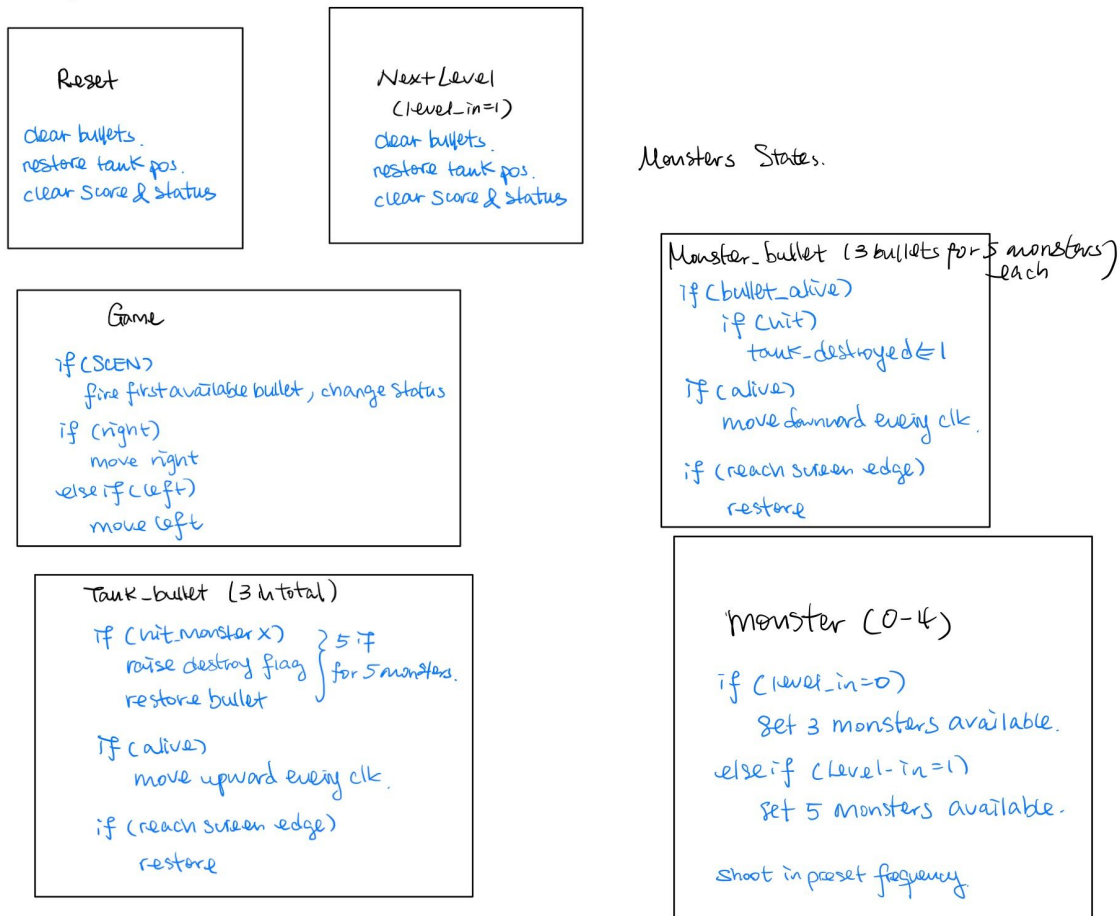 Reset
clear bullets.
restore tank pos.
clear score & status
Next Level
(level_in=1)
clear bullets.
restore tank pos.
clear score & status
Game
if (SCEN)
fire first available bullet, change status
if (right)
move right
else if (left)
move left
Tank_bullet (3 in total)
if (hit_monster X)
raise destroy flag
restore bullet
} 5 if
for 5 monsters.
if (alive)
move upward every clk.
if (reach screen edge)
restore
Monsters States.
Monster_bullet (3 bullets for 5 monsters)
each
if (bullet_alive)
if (hit)
tank_destroyed <= 1
if (alive)
move downward every clk.
if (reach screen edge)
restore
monster (0-4)
if (level_in=0)
set 3 monsters available.
else if (level_in=1)
set 5 monsters available.
shoot in preset frequency